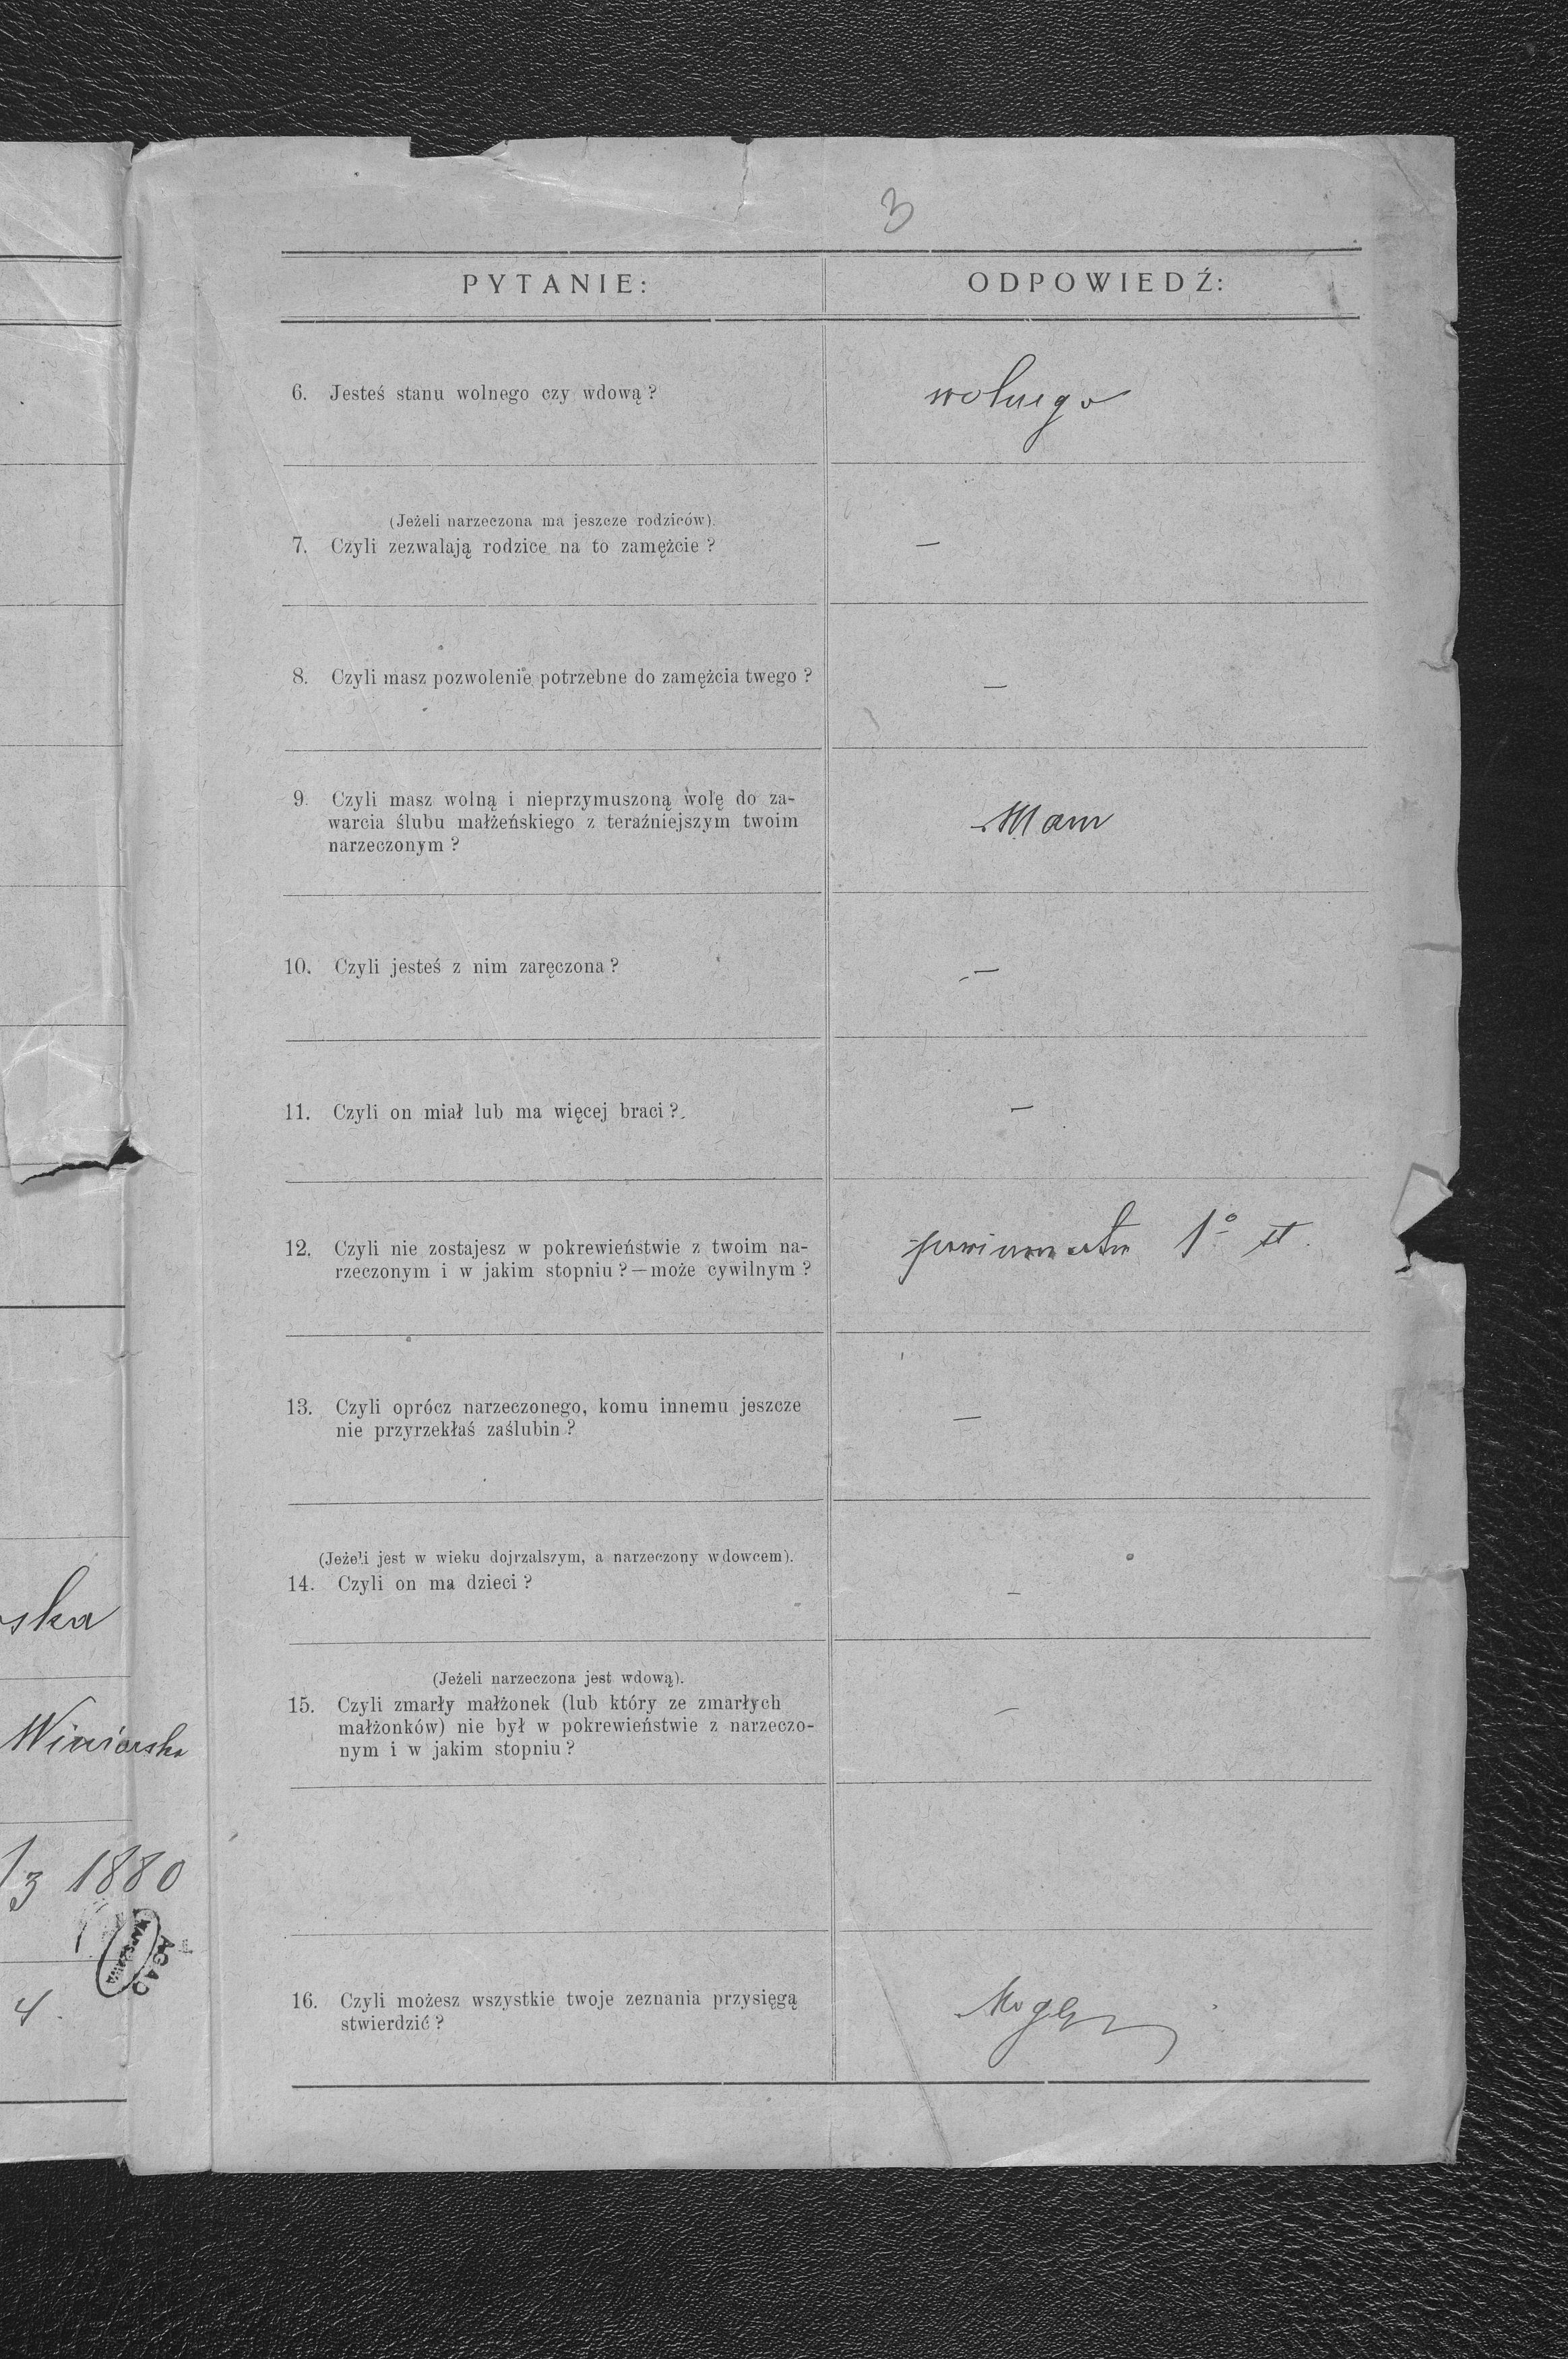 3
PYTANIE:
ODPOWIEDŹ:
6. Jesteś stanu wolnego czy wdową ?
wolnego
(Jeżeli narzeczona ma jeszcze rodziców).
7. Czyli zezwalają rodzice na to zamężcie ?
—
8. Czyli masz pozwolenie potrzebne do zamężcia twego ?
—
9. Czyli masz wolną i nieprzymuszoną wolę do za-
warcia ślubu małżeńskiego z teraźniejszym twoim
narzeczonym ?
Mam
10. Czyli jesteś z nim zaręczona ?
—
11. Czyli on miał lub ma więcej braci ?
—
12. Czyli nie zostajesz w pokrewieństwie z twoim na-
rzeczonym i w jakim stopniu ? — może cywilnym ?
1º st.
13. Czyli oprócz narzeczonego, komu innemu jeszcze
nie przyrzekłaś zaślubin ?
—
(Jeżeli jest w wieku dojrzalszym, a narzeczony wdowcem).
14. Czyli on ma dzieci ?
—
(Jeżeli narzeczona jest wdową).
15. Czyli zmarły małżonek (lub który ze zmarłych
małżonków) nie był w pokrewieństwie z narzeczo-
nym i w jakim stopniu ?
—
16. Czyli możesz wszystkie twoje zeznania przysięgą
stwierdzić ?
Mogę
ska
/3 1880
AGAD
WARSZAWA
4.